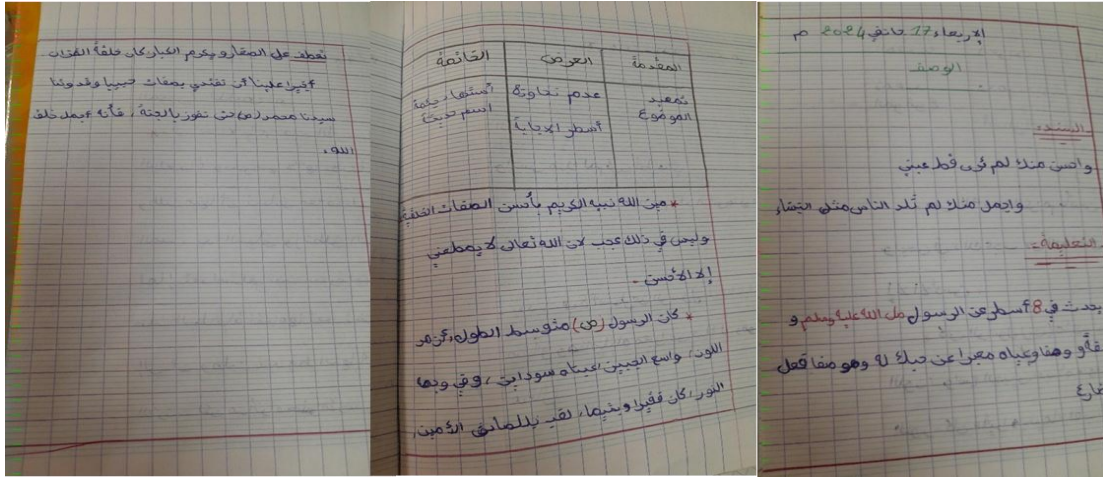 الإربعاء 17 جانفي 2024 م
الوصف
السند:
واحسن منك لم ترى قط عيني
واجمل منك لم تلد الناس مثل النساء
التعليمة:
يحدث في 8 أسطر عن الرسول صلى الله عليه وسلم و
معبرا عن حبك له وهو
المقدمة العرض القائمة
تمهيد الموضوع
عدم تجاوزة أسطر الاجابة
* مين الله نبيه الكريم بأحسن الصفات الخلقية
وليس في ذلك عجب لان الله تعالى لا يصطفي
إلا الأحسن.
* كان الرسول (ص) متوسط الطول،
اللون، واسع الجبين، عيناه سوداين، وفي وجها
النور، كان فقيرا ويتيما، لقب بالصادق الأمين،
تعطف على الصغار ويكرم الكبار كان خلقة القران
علينا أن نقتدي بصفات حبيبا وقدوتنا
سيدنا محمد (ص) حتى نفوز بالجنة، فأنه اجمل خلق
الله.